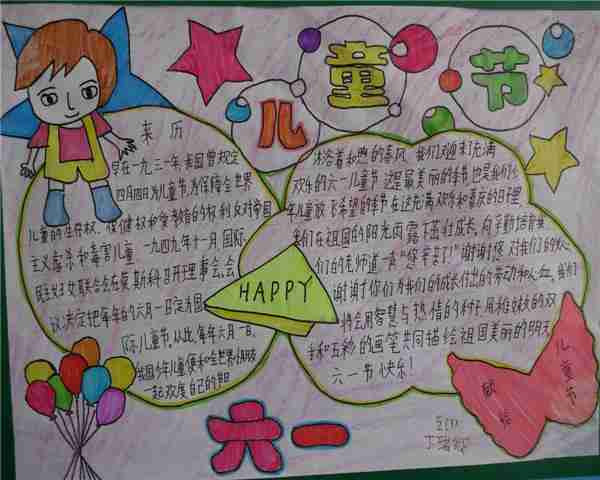 儿童节
来历
早在一九三一年,我国曾规定
四月四日为儿童节,为保障全世界
儿童的生存权、保健权和受教育的权利,反对帝国
主义虐杀和毒害儿童,一九四九年十一月,国际
民主妇女联合会在莫斯科召开理事会,会
议决定把每年的六月一日定为国
际儿童节,从此,每年六月一日,
我国少年儿童便和全世界小朋友
一起欢度自己的节日
沐浴着和煦的春风,我们迎来充满
欢乐的六一儿童节,这是最美丽的季节,也是我们少
年儿童放飞希望的季节,在这充满欢乐和喜庆的日子里
我们在祖国的阳光雨露下茁壮成长,向辛勤培育我
们的老师道一声“您辛苦了!”谢谢您对我们的关心
谢谢你们为我们的成长付出的劳动和心血,我们
将会用智慧与热情的种子,用稚嫩的双
手和五彩的画笔共同描绘祖国美丽的明天
六一节快乐!
HAPPY
欢乐
儿童节
六一